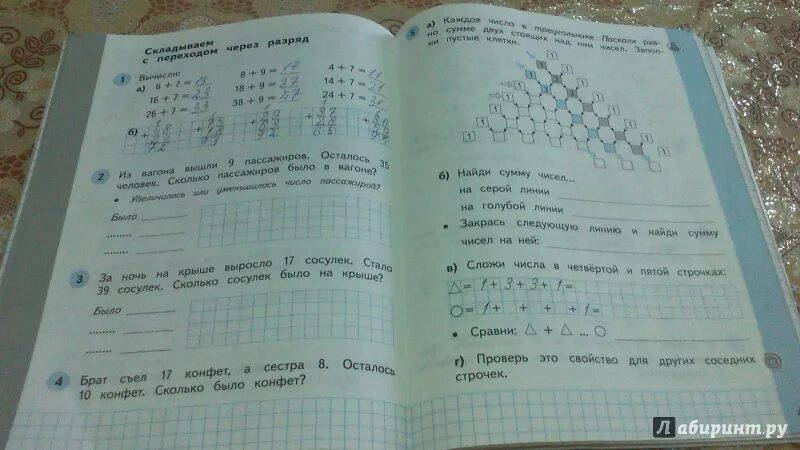 Складываем
с переходом через разряд
1 Вычисли:
а) 6 + 7 = 13 8 + 9 = 17 4 + 7 = 11
16 + 7 = 23 18 + 9 = 27 14 + 7 = 21
26 + 7 = 33 38 + 9 = 47 24 + 7 = 31
б)
2 Из вагона вышли 9 пассажиров. Осталось 35
человек. Сколько пассажиров было в вагоне?
• Увеличилось или уменьшилось число пассажиров?
Было
3 За ночь на крыше выросло 17 сосулек. Стало
39 сосулек. Сколько сосулек было на крыше?
Было
4 Брат съел 17 конфет, а сестра 8. Осталось
10 конфет. Сколько было конфет?
5 а) Каждое число в треугольнике Паскаля рав-
но сумме двух стоящих над ним чисел. Запол-
ни пустые клетки.
1
1 1
1 1
1 1
1 1
1 1
1 1
б) Найди сумму чисел...
на серой линии
на голубой линии
• Закрась следующую линию и найди сумму
чисел на ней:
в) Сложи числа в четвёртой и пятой строчках:
△ = 1 + 3 + 3 + 1 =
○ = 1 + + + + 1 =
• Сравни: △ + △ ... ○
г) Проверь это свойство для других соседних
строчек.
Лабиринт.ру